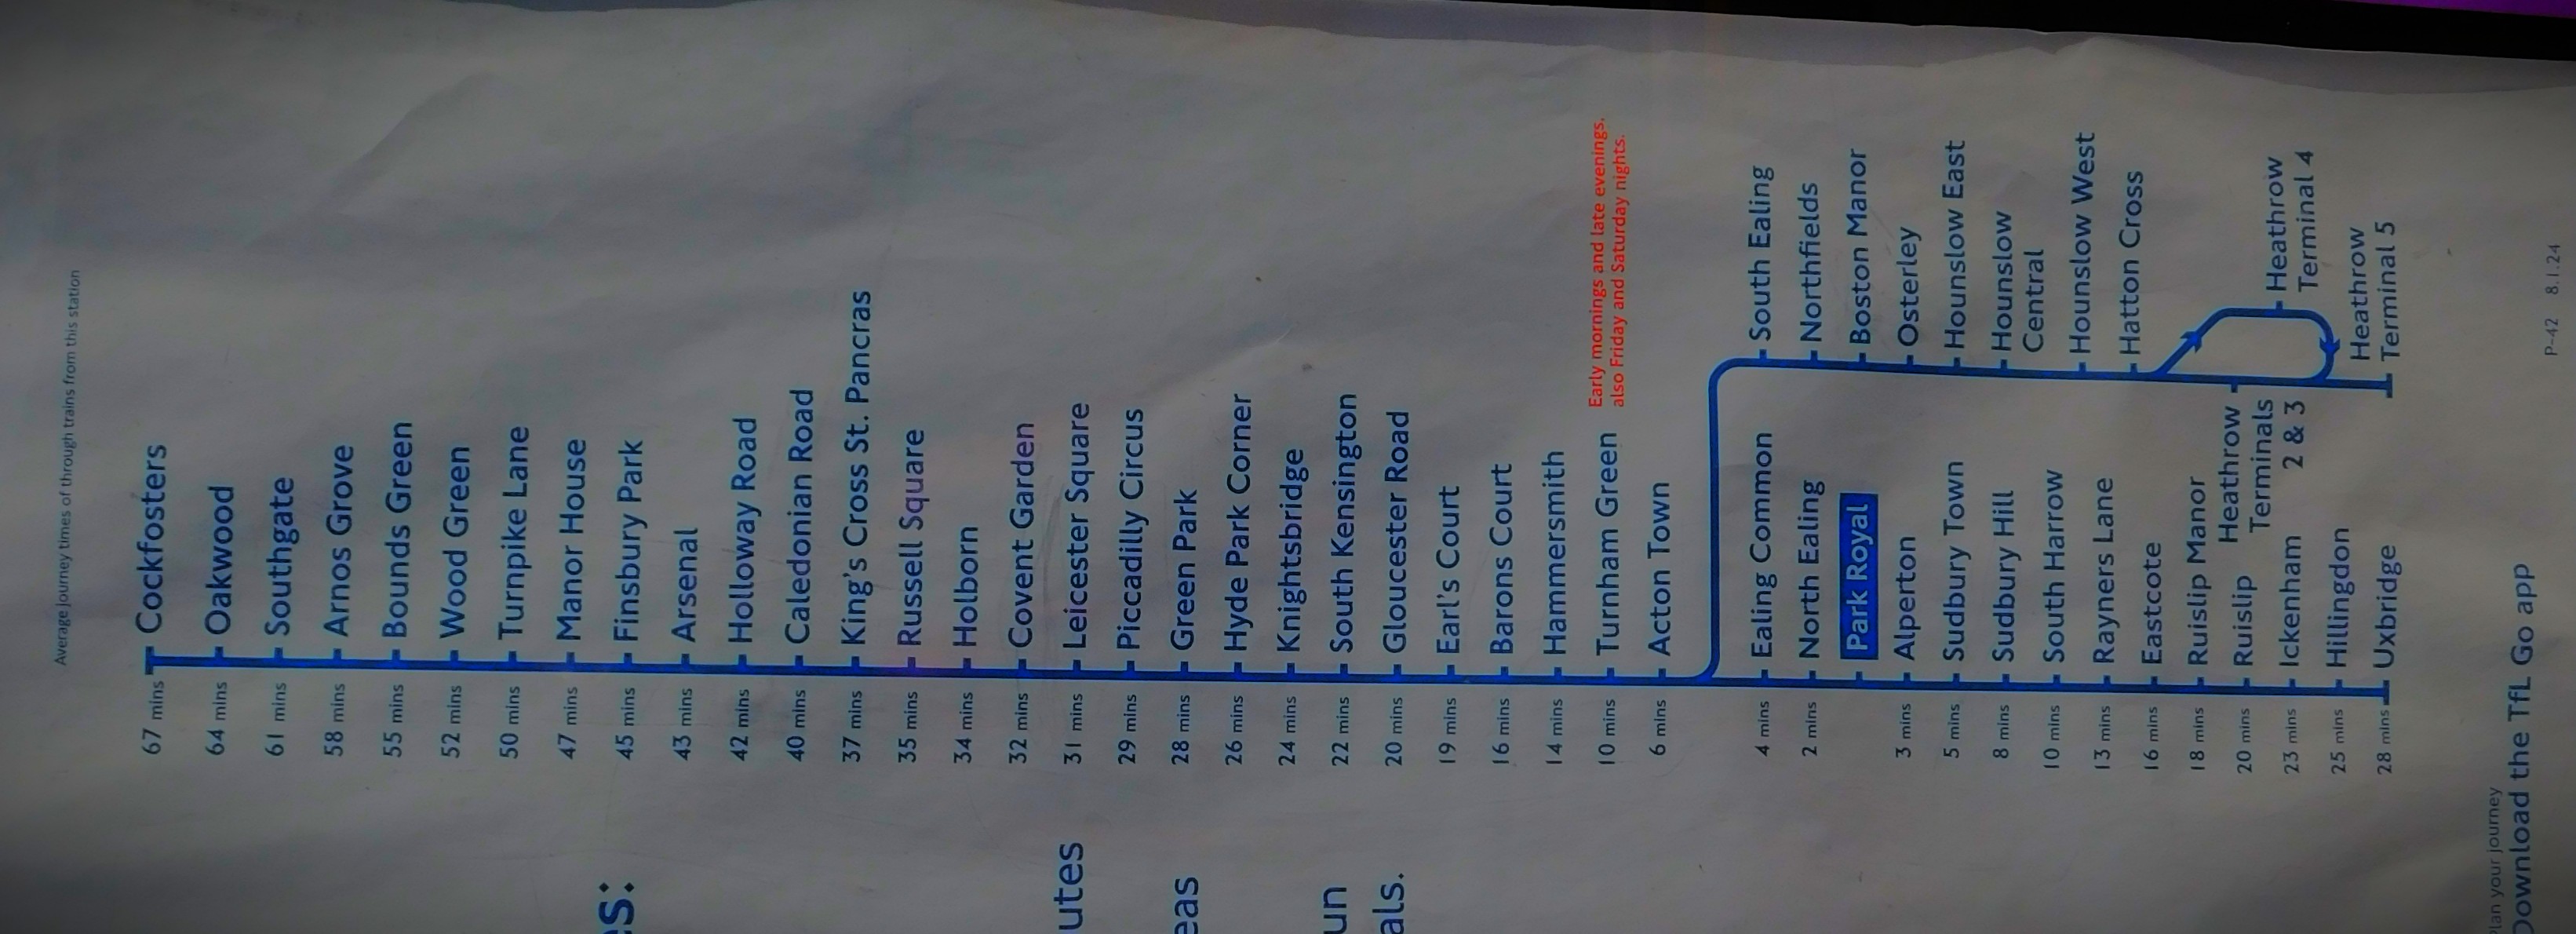 Average journey times of through trains from this station
67 mins Cockfosters
64 mins Oakwood
61 mins Southgate
58 mins Arnos Grove
55 mins Bounds Green
52 mins Wood Green
50 mins Turnpike Lane
47 mins Manor House
45 mins Finsbury Park
43 mins Arsenal
42 mins Holloway Road
40 mins Caledonian Road
37 mins King's Cross St. Pancras
35 mins Russell Square
34 mins Holborn
32 mins Covent Garden
31 mins Leicester Square
29 mins Piccadilly Circus
28 mins Green Park
26 mins Hyde Park Corner
24 mins Knightsbridge
22 mins South Kensington
20 mins Gloucester Road
19 mins Earl's Court
16 mins Barons Court
14 mins Hammersmith
10 mins Turnham Green
Early mornings and late evenings,
also Friday and Saturday nights.
6 mins Acton Town
4 mins Ealing Common
2 mins North Ealing
Park Royal
3 mins Alperton
5 mins Sudbury Town
8 mins Sudbury Hill
10 mins South Harrow
13 mins Rayners Lane
16 mins Eastcote
18 mins Ruislip Manor
20 mins Ruislip
23 mins Ickenham
25 mins Hillingdon
28 mins Uxbridge
South Ealing
Northfields
Boston Manor
Osterley
Hounslow East
Hounslow
Central
Hounslow West
Hatton Cross
Heathrow
Terminals
2 & 3
Heathrow
Terminal 4
Heathrow
Terminal 5
your journey
Download the TfL Go app
P-42 8.1.24